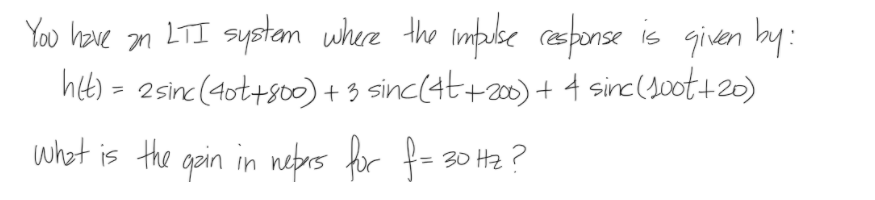 You have an LTI system where the impulse response is given by:
h(t) = 2 sinc(40t+800) + 3 sinc(4t+200) + 4 sinc(100t+20)
What is the gain in nepers for f = 30 Hz?